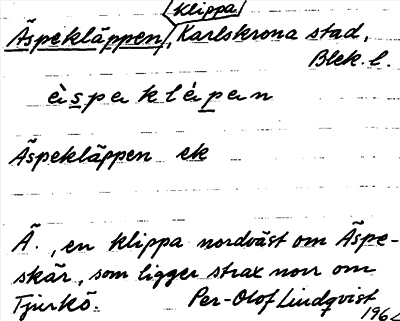 klippa
Äspekläppen, Karlskrona stad,
Blek. l.
ä̀speklä́pen
Äspekläppen ek
Ä., en klippa nordväst om Äspe-
skär, som ligger strax norr om
Tjurkö. Per-Olof Lindqvist